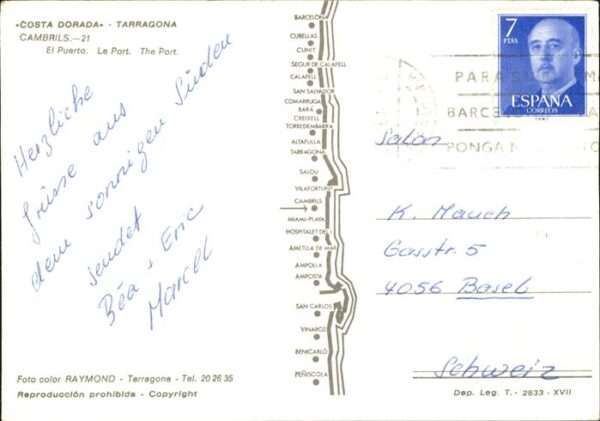 «COSTA DORADA» - TARRAGONA
CAMBRILS.—21
El Puerto. Le Port. The Port.
Herzliche
Grüsse aus
dem sonnigen Süden
sendet
Béa + Eric
Marcel
Foto color RAYMOND - Tarragona - Tel. 20 26 35
Reproducción prohibida - Copyright
BARCELONA
CUBELLAS
CUNIT
SEGUR DE CALAFELL
CALAFELL
SAN SALVADOR
COMARRUGA
BARÁ
CREIXELL
TORREDEMBARRA
ALTAFULLA
TARRAGONA
SALOU
VILAFORTUNY
CAMBRILS
MIAMI-PLAYA
HOSPITALET DE I.
AMETLLA DE MAR
AMPOLLA
AMPOSTA
SAN CARLOS
VINAROZ
BENICARLÓ
PEÑISCOLA
7
PTAS
ESPAÑA
CORREOS
PARA
BARCEL
PONGA
Salon
K. Mauch
Gasstr. 5
4056 Basel
Schweiz
Dep. Leg. T. - 2833 - XVII